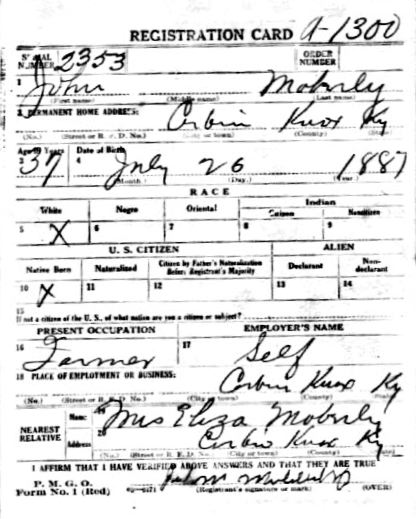 REGISTRATION CARD A-1300
SERIAL NUMBER 2353 ORDER NUMBER
1 John Moberly
(First name) (Middle name) (Last name)
2 PERMANENT HOME ADDRESS: Corbin Knox Ky
(No.) (Street or R. F. D. No.) (City or town) (County) (State)
Age in Years Date of Birth
3 37 4 July 26 1887
(Month.) (Day.) (Year.)
RACE
White Negro Oriental Indian
Citizen Noncitizen
5 X 6 7 8 9
U. S. CITIZEN ALIEN
Native Born Naturalized Citizen by Father's Naturalization Before Registrant's Majority Declarant Non-declarant
10 X 11 12 13 14
15
If not a citizen of the U. S., of what nation are you a citizen or subject?
PRESENT OCCUPATION EMPLOYER'S NAME
16 Farmer 17 Self
18 PLACE OF EMPLOYMENT OR BUSINESS: Corbin Knox Ky
(No.) (Street or R. F. D. No.) (City or town) (County) (State)
NEAREST RELATIVE Name 19 Mrs Eliza Moberly
Address 20 Corbin Knox Ky
(No.) (Street or R. F. D. No.) (City or town) (County) (State)
I AFFIRM THAT I HAVE VERIFIED ABOVE ANSWERS AND THAT THEY ARE TRUE
P. M. G. O.
Form No. 1 (Red) (Registrant's signature or mark) (OVER)